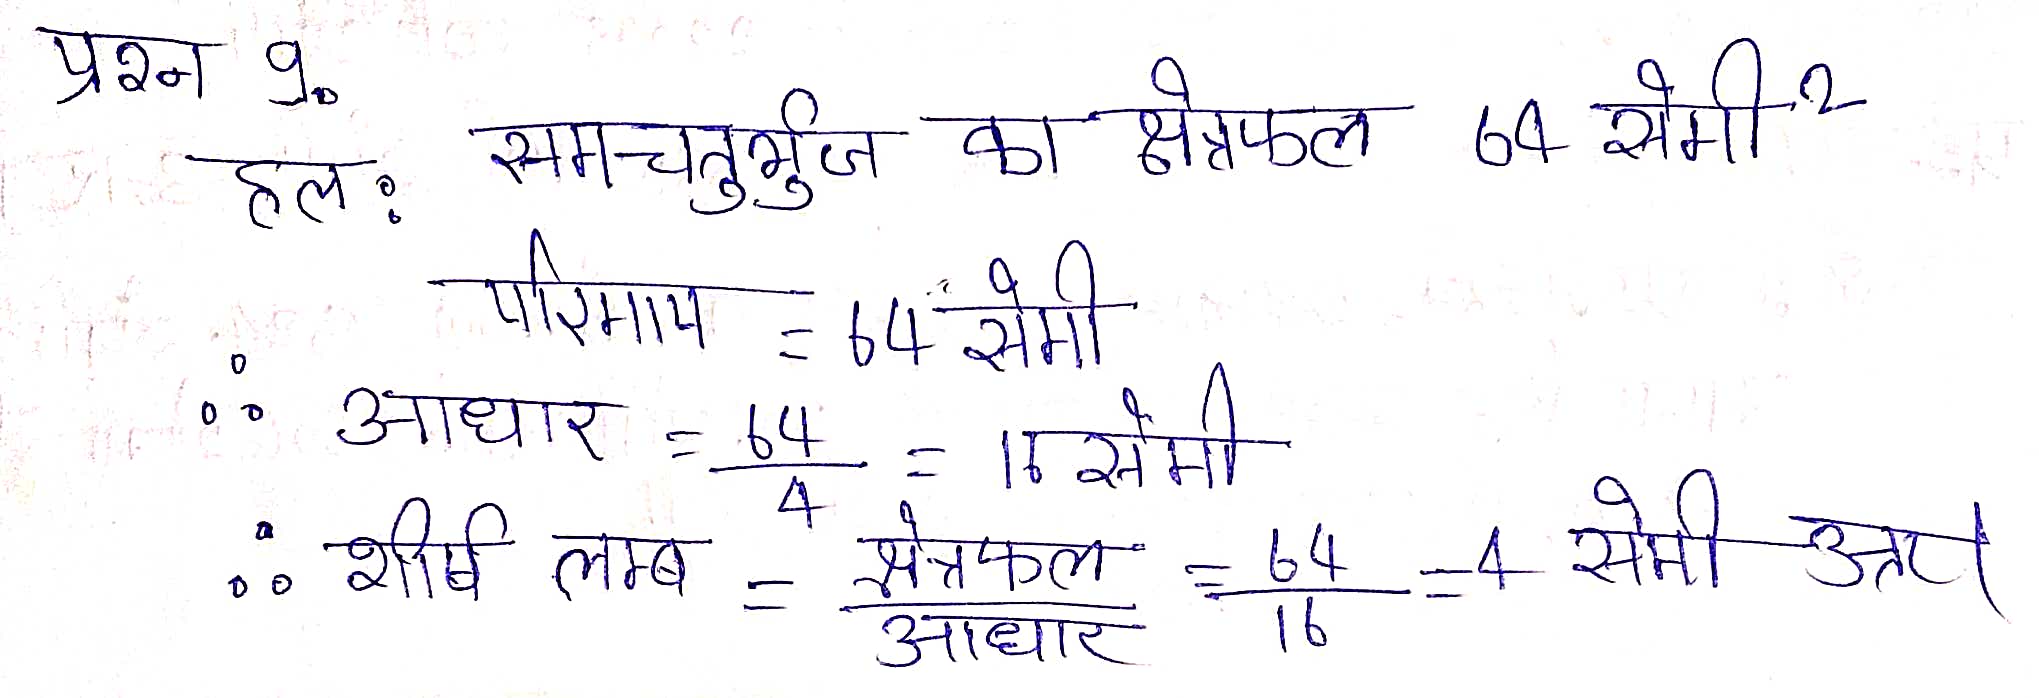 प्रश्न 9.
हल: समचतुर्भुज का क्षेत्रफल 64 सेमी²
परिमाप = 64 सेमी
∴ आधार = 64/4 = 16 सेमी
∴ शीर्ष लम्ब = क्षेत्रफल/आधार = 64/16 = 4 सेमी उत्तर।